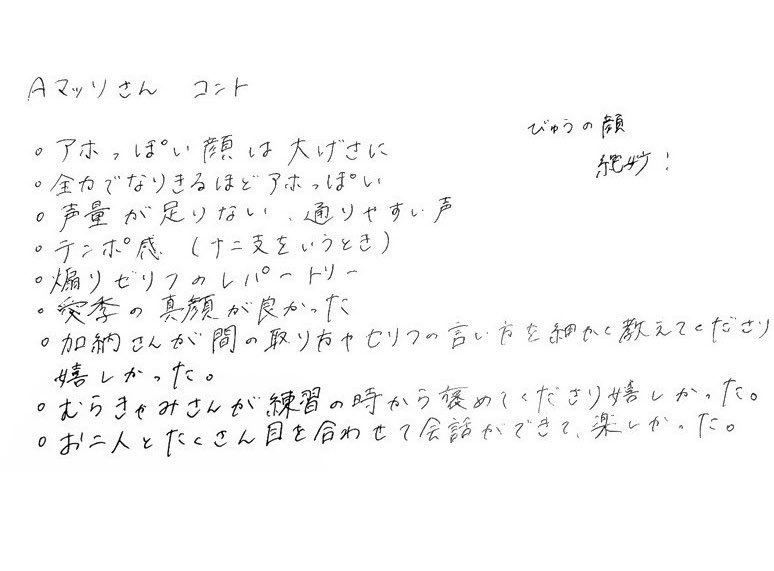 Aマッソさん コント
びゅうの顔
絶妙!
○アホっぽい顔は大げさに
○全力でなりきるほどアホっぽい
○声量が足りない、通りやすい声
○テンポ感(十二支をいうとき)
○煽りゼリフのレパートリー
○愛季の真顔が良かった
○加納さんが間の取り方やセリフの言い方を細かく教えてくださり
嬉しかった。
○むらきゃみさんが練習の時から褒めてくださり嬉しかった。
○お二人とたくさん目を合わせて会話ができて、楽しかった。